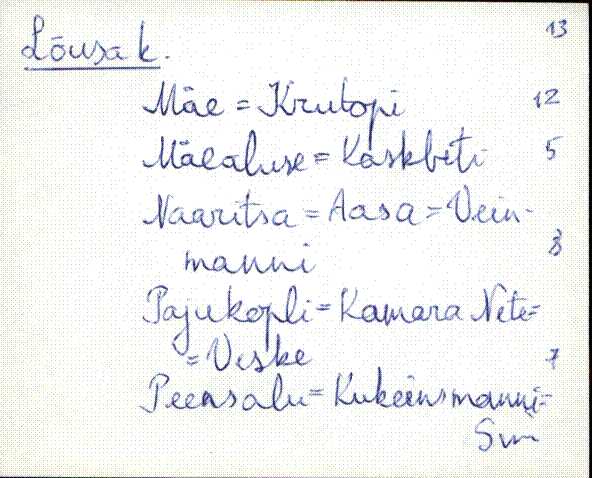 Lõusa k. 13
Mäe = Krutopi 12
Mäealuse = Kaskbeti 5
Naaritsa = Aasa = Vein-
manni 8
Pajukopli = Kamara Nete =
= Veske 7
Peensalu = Kukeinsmanni =